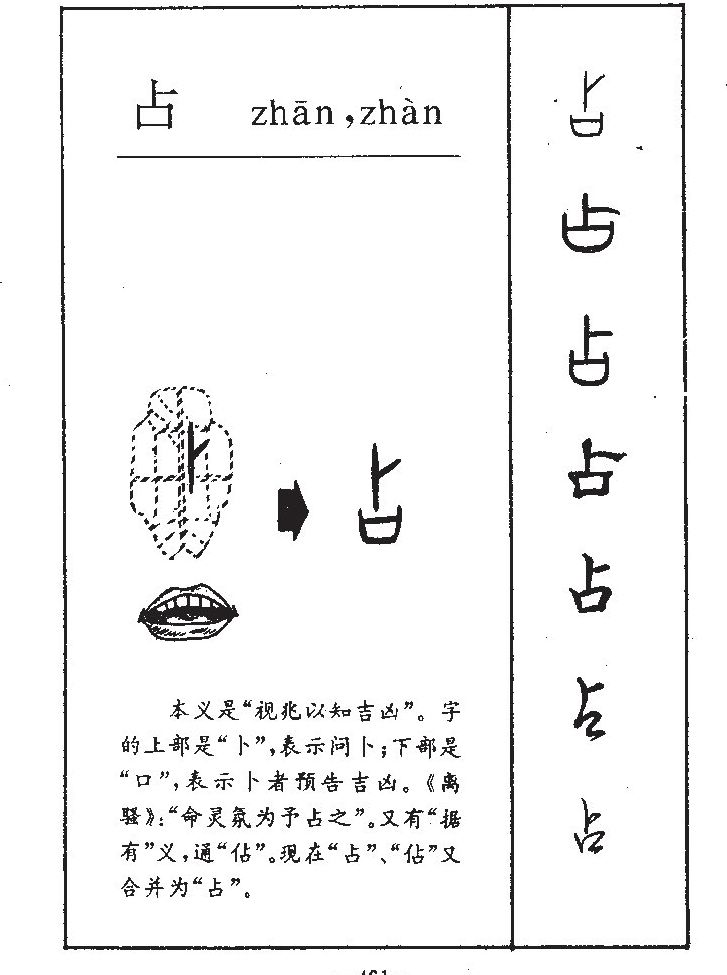 占 zhān,zhàn
占
本义是“视兆以知吉凶”。字
的上部是“卜”,表示问卜;下部是
“口”,表示卜者预告吉凶。《离
骚》:“命灵氛为予占之”。又有“据
有”义,通“佔”。现在“占”、“佔”又
合并为“占”。
占
占
占
占
占
占
占